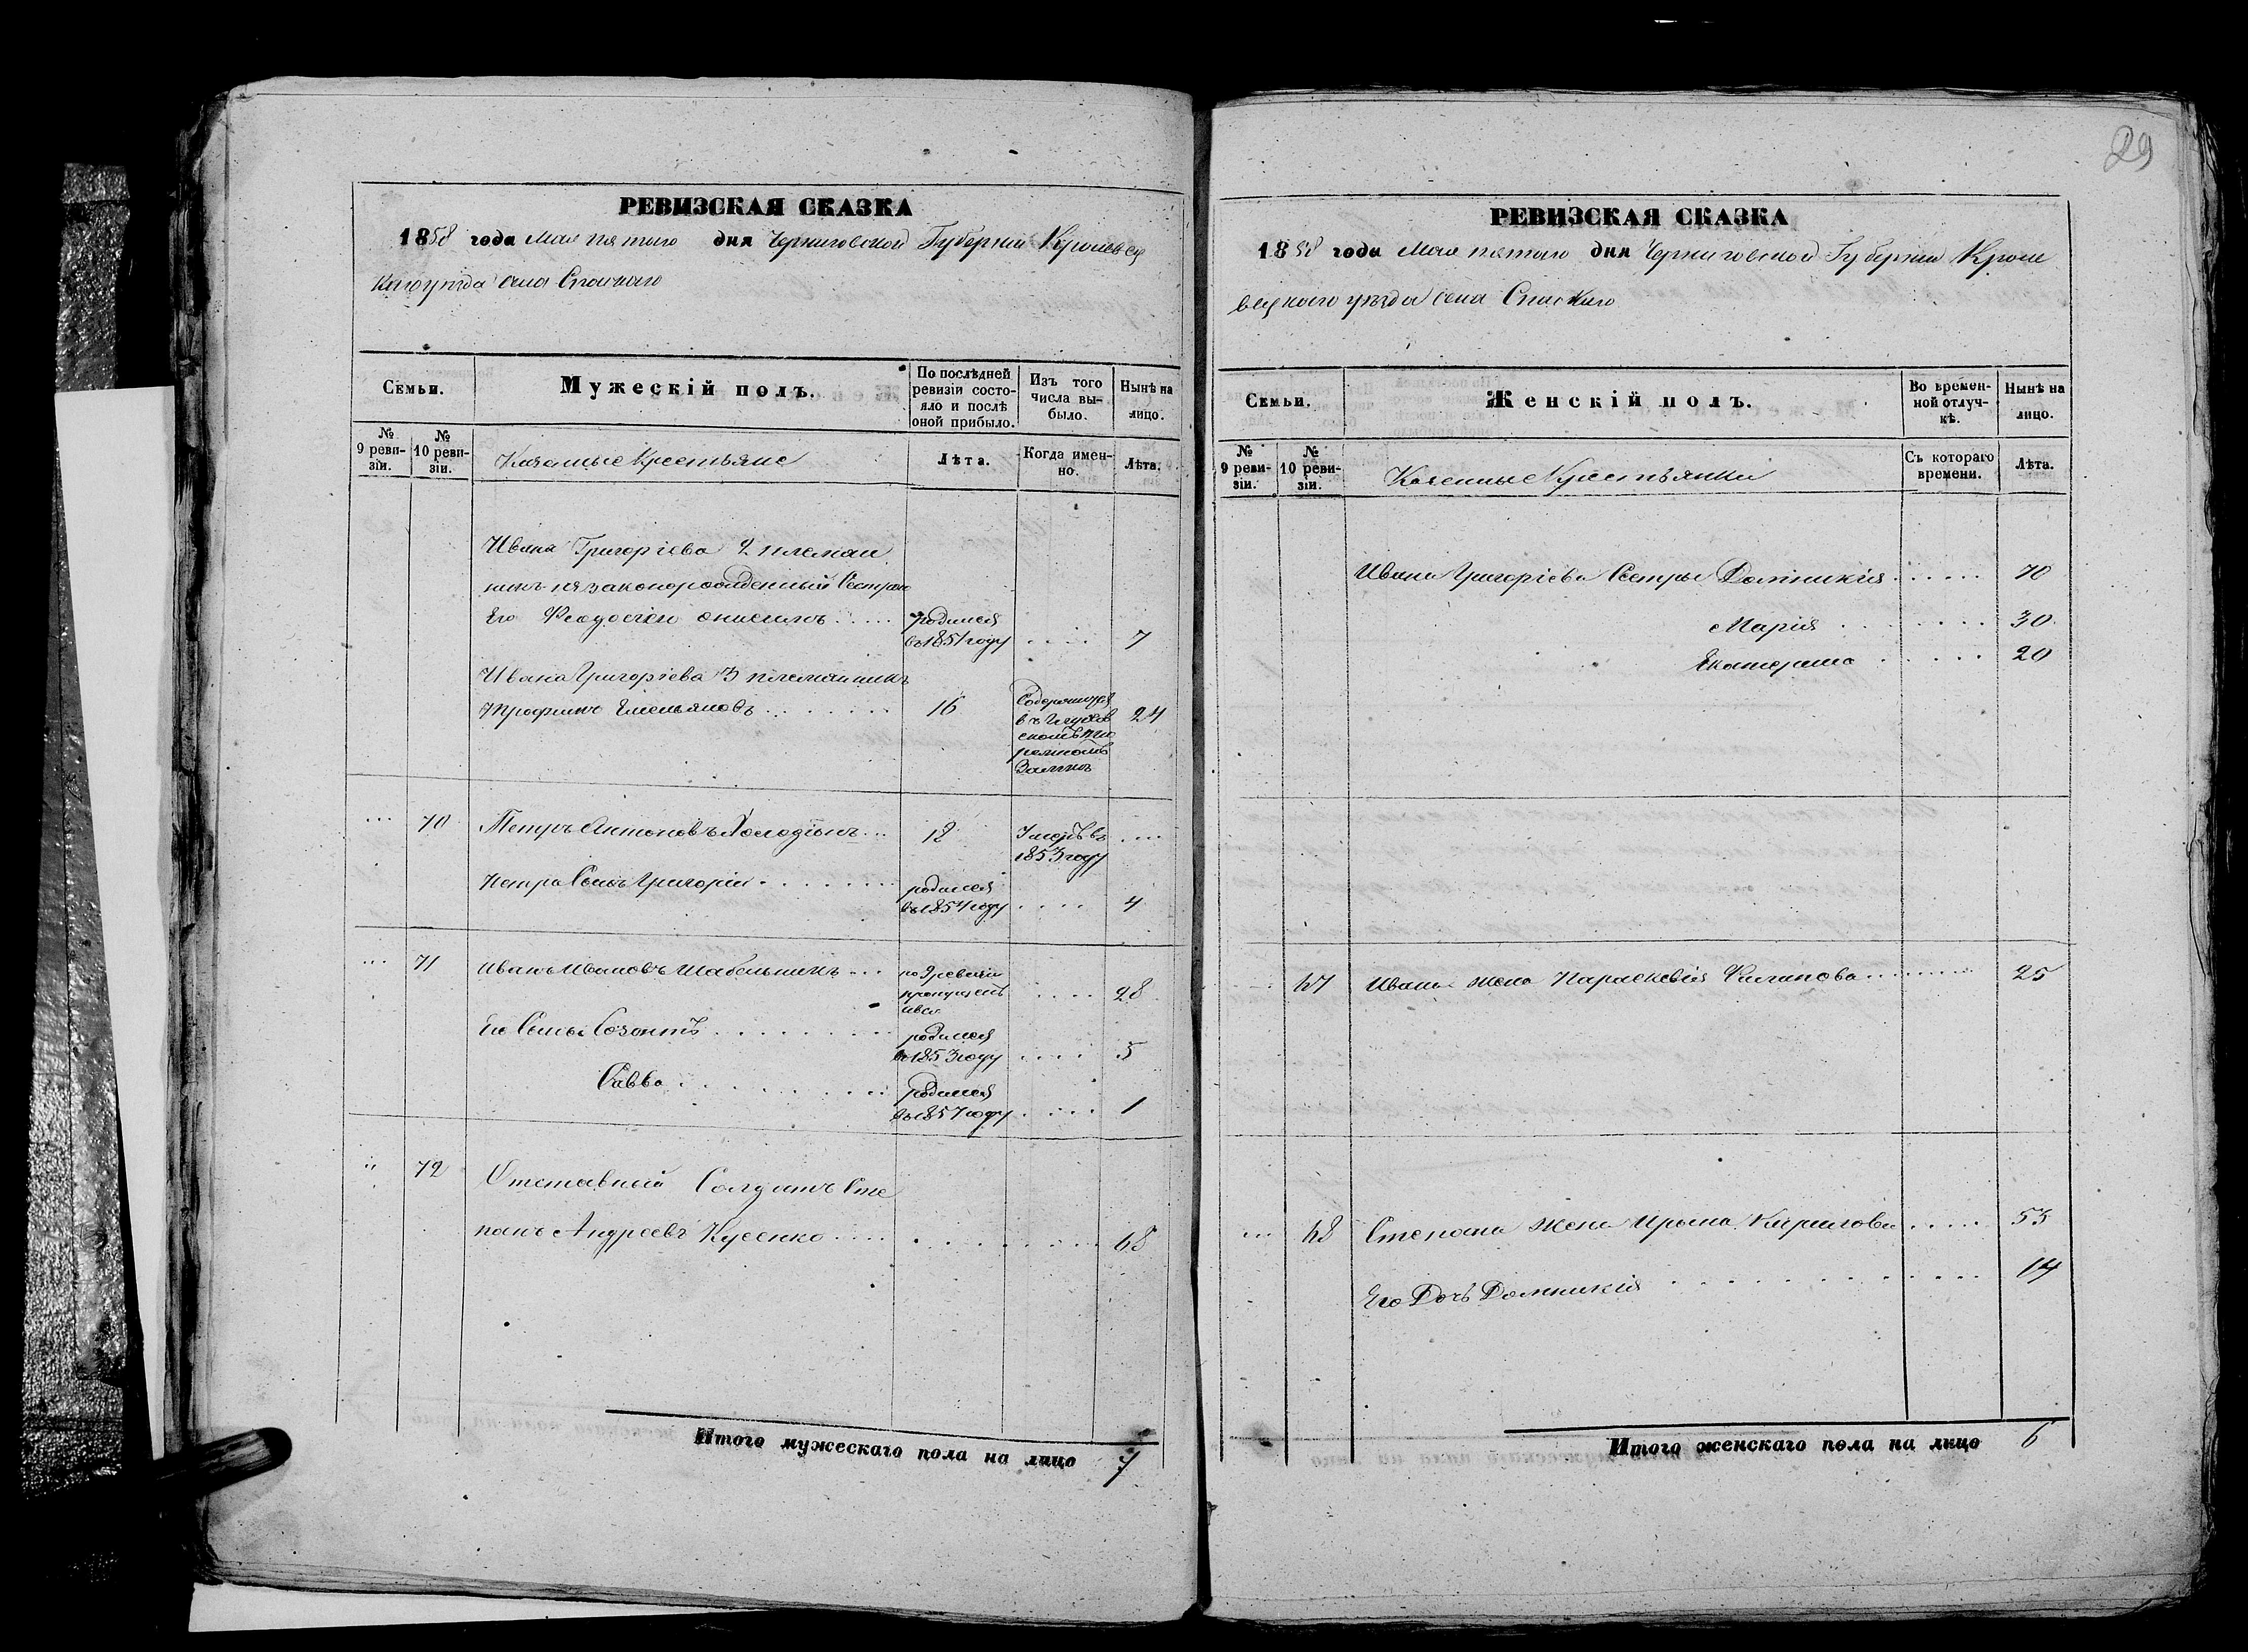 29
РЕВИЗСКАЯ СКАЗКА
1858 года Мая пятаго дня Черниговской Губернии Кролевец
каго уезда села Спаскаго
Семьи.
Мужескій полъ.
По послѣдней ревизіи состояло и послѣ оной прибыло.
Изъ того числа выбыло.
Нынѣ на лицо.
№ 9 ревизіи.
№ 10 ревизіи.
Казенные Крестьяне
Лѣта.
Когда именно.
Лѣта.
Ивана Григоріева 2 племян
никъ незаконорожденный Сестрою
Его Феодосіею
родился
въ 1851 году .... 7
Ивана Григоріева 3 племянникъ
Трофимъ Емельяновъ 16 24
Содержится
въ Глухов
скомъ тю
ремномъ
Замкѣ
... 70 Петръ Антоновъ ... 12 Умеръ въ ....
1853 году
Петра Сынъ Григорій родился
въ 1854 году .... 4
... 71 Иванъ Ивановъ Шабельникъ ... по 9 ревизіи
пропущенъ .... 28
Его Сыны Созонтъ родился
въ 1853 году .... 5
Савва родился
въ 1857 году .... 1
" 72 Отставный Солдатъ Сте
панъ Андреевъ Кусенко 68
Итого мужескаго пола на лицо 7
РЕВИЗСКАЯ СКАЗКА
1858 года Мая пятаго дня Черниговской Губернии Кроле
вецкаго уѣзда села Спаскаго
Семьи.
Женскій полъ.
Во временной отлучкѣ.
Нынѣ на лицо.
№ 9 ревизіи.
№ 10 ревизіи.
Казенные Крестьянки
Съ котораго времени.
Лѣта.
Ивана Григоріева Сестры Домникія 70
Марія 30
Екатерина 20
67 Ивана жена Параскевія Филипова 25
... 68 Степана жена Ирина Кирилова 53
Его Дочь Домникія 14
Итого женскаго пола на лицо 6